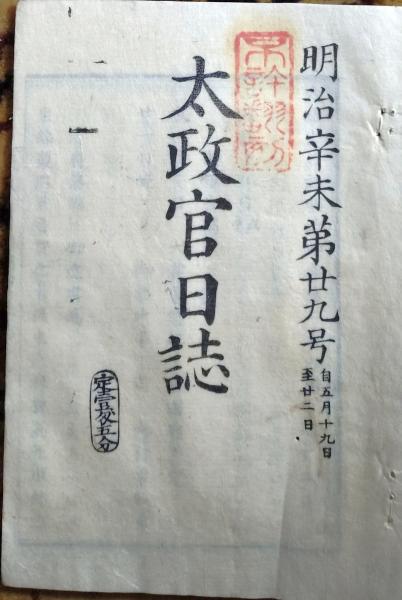 明治辛未第廿九号
自五月十九日
至廿二日
太政官日誌
定壹匁五分